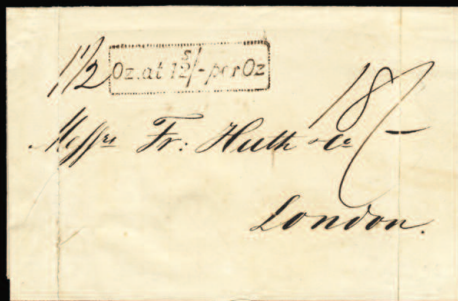 1 1/2 Oz.at 12/-per Oz
18/-
Messrs Fr: Huth & Co
London.